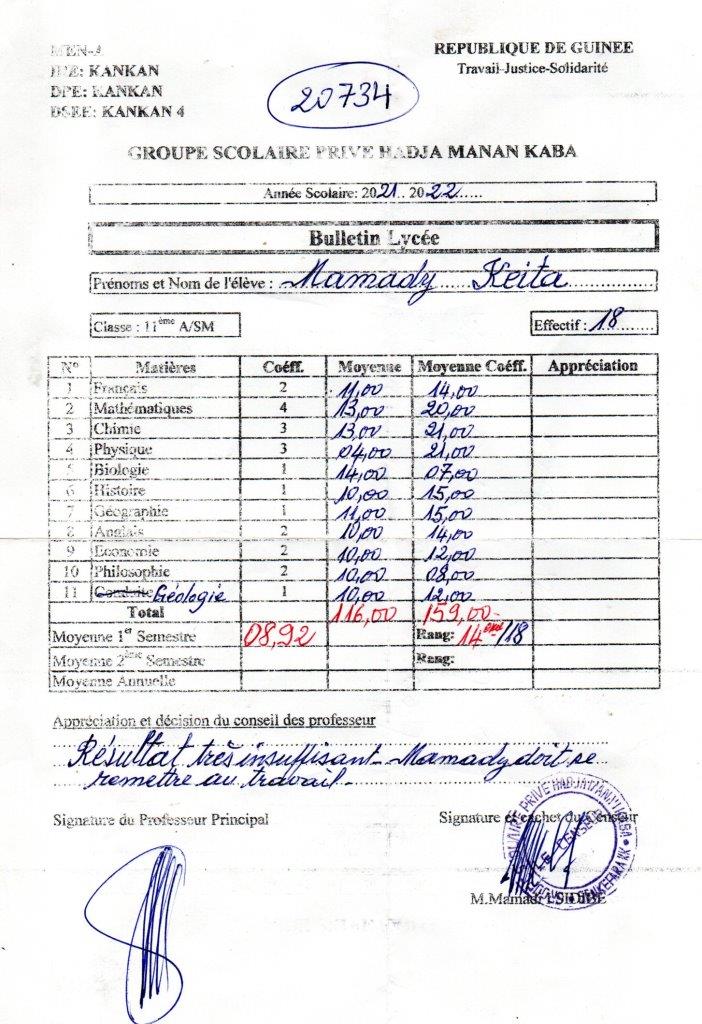 MEN-A
IRE: KANKAN
DPE: KANKAN
DSEE: KANKAN 4
REPUBLIQUE DE GUINEE
Travail-Justice-Solidarité
20734
GROUPE SCOLAIRE PRIVE HADJA MANAN KABA
Année Scolaire: 2021.. 2022......
Bulletin Lycée
Prénoms et Nom de l'élève : Mamady Keita
Classe : 11ème A/SM
Effectif : 18
N° Matières Coéff. Moyenne Moyenne Coéff. Appréciation
1 Français 2 11,00 14,00
2 Mathématiques 4 13,00 20,00
3 Chimie 3 13,00 21,00
4 Physique 3 04,00 21,00
5 Biologie 1 14,00 07,00
6 Histoire 1 10,00 15,00
7 Géographie 1 11,00 15,00
8 Anglais 2 10,00 14,00
9 Economie 2 10,00 12,00
10 Philosophie 2 10,00 08,00
11 Conduite Géologie 1 10,00 12,00
Total 116,00 159,00
Moyenne 1er Semestre 08,92 Rang: 14ème/18
Moyenne 2ème Semestre Rang:
Moyenne Annuelle
Appréciation et décision du conseil des professeur
Résultat très insuffisant_ Mamady doit se
remettre au travail_
Signature du Professeur Principal
Signature et cachet du Censeur
LE CENSEUR
M.Mamadi